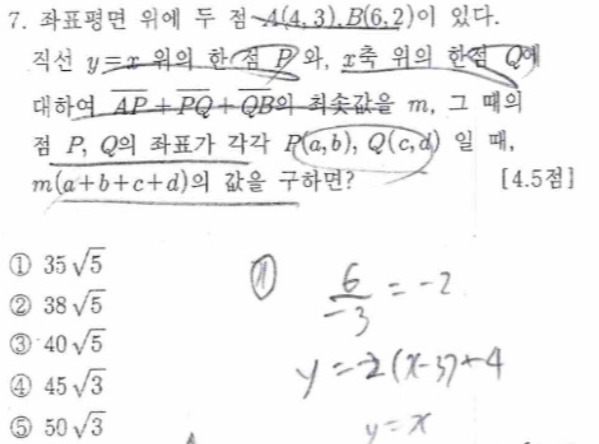 7. 좌표평면 위에 두 점 A(4, 3), B(6, 2)이 있다.
직선 y=x 위의 한 점 P와, x축 위의 한점 Q에
대하여 AP+PQ+QB의 최솟값을 m, 그 때의
점 P, Q의 좌표가 각각 P(a, b), Q(c, d) 일 때,
m(a+b+c+d)의 값을 구하면? [4.5점]
① 35√5
② 38√5
③ 40√5
④ 45√3
⑤ 50√3
①
6/-3 = -2
y = -2(x-3)+4
y = x